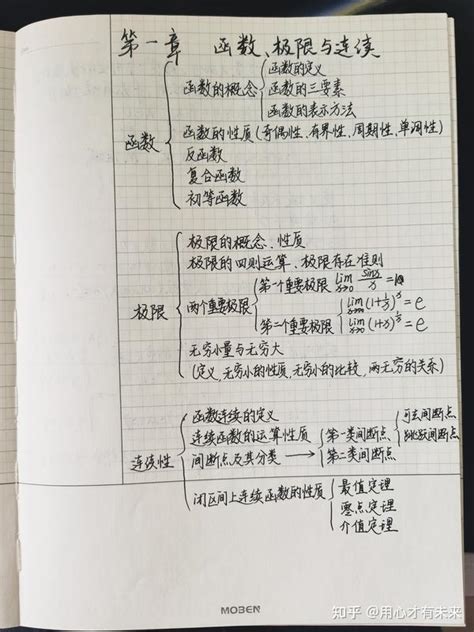 第一章 函数、极限与连续
函数
函数的概念
函数的定义
函数的三要素
函数的表示方法
函数的性质(奇偶性,有界性,周期性,单调性)
反函数
复合函数
初等函数
极限
极限的概念、性质
极限的四则运算、极限存在准则
两个重要极限
第一个重要极限 lim x→0 sinx/x = 1
第二个重要极限
lim x→∞ (1+1/x)^x = e
lim x→0 (1+x)^1/x = e
无穷小量与无穷大
(定义,无穷小的性质,无穷小的比较,两无穷的关系)
连续性
函数连续的定义
连续函数的运算性质
间断点及其分类 → 第一类间断点
可去间断点
跳跃间断点
第二类间断点
闭区间上连续函数的性质
最值定理
零点定理
介值定理
MOBEN
知乎 @用心才有未来